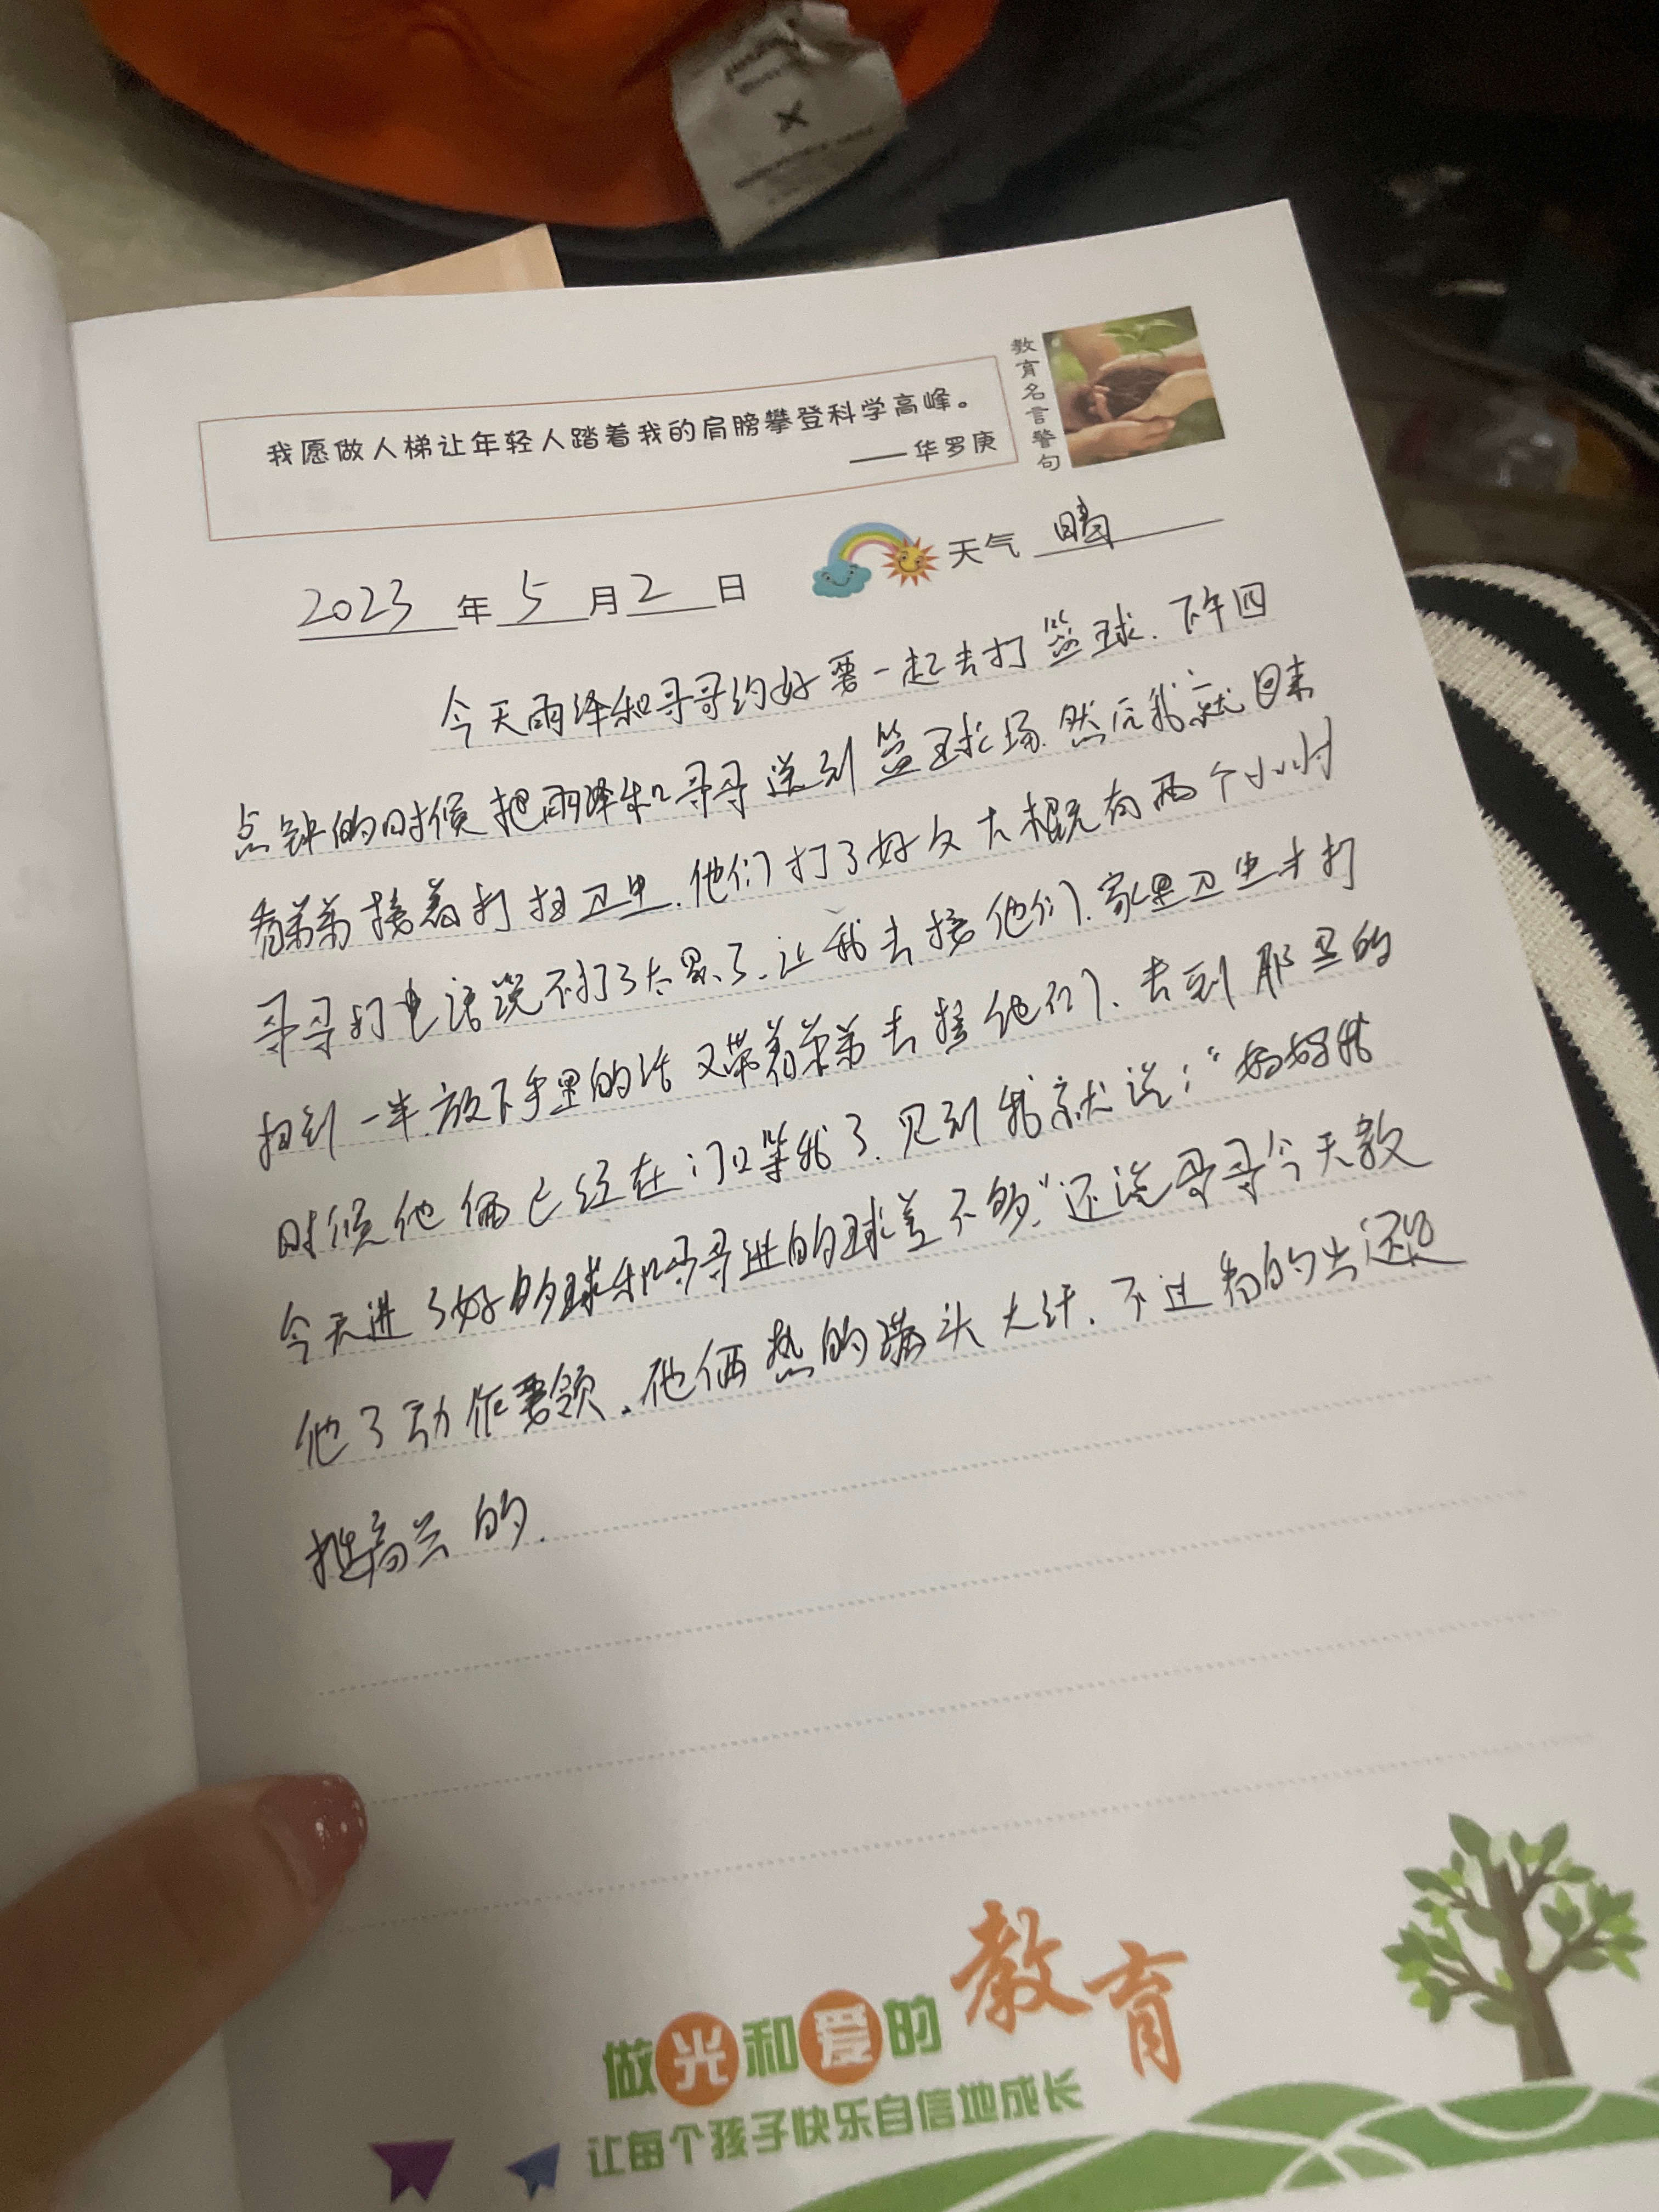 我愿做人梯让年轻人踏着我的肩膀攀登科学高峰。
——华罗庚
教育名言警句
2023年5月2日
天气 晴
今天雨泽和哥哥约好要一起去打篮球.下午四
点钟的时候把雨泽和哥哥送到篮球场.然后我就回来
看弟弟接着打扫卫生.他们打了好久大概有两个小时
哥哥打电话说不打了太累了.让我去接他们.家里卫生才打
扫到一半.放下手里的活又带着弟弟去接他们.去到那里的
时候他俩已经在门口等我了.见到我就说:“妈妈我
今天进了好多球和哥哥进的球差不多.”还说哥哥今天教
他了动作要领.他俩热的满头大汗.不过看的出还是
挺高兴的.
做光和爱的教育
让每个孩子快乐自信地成长